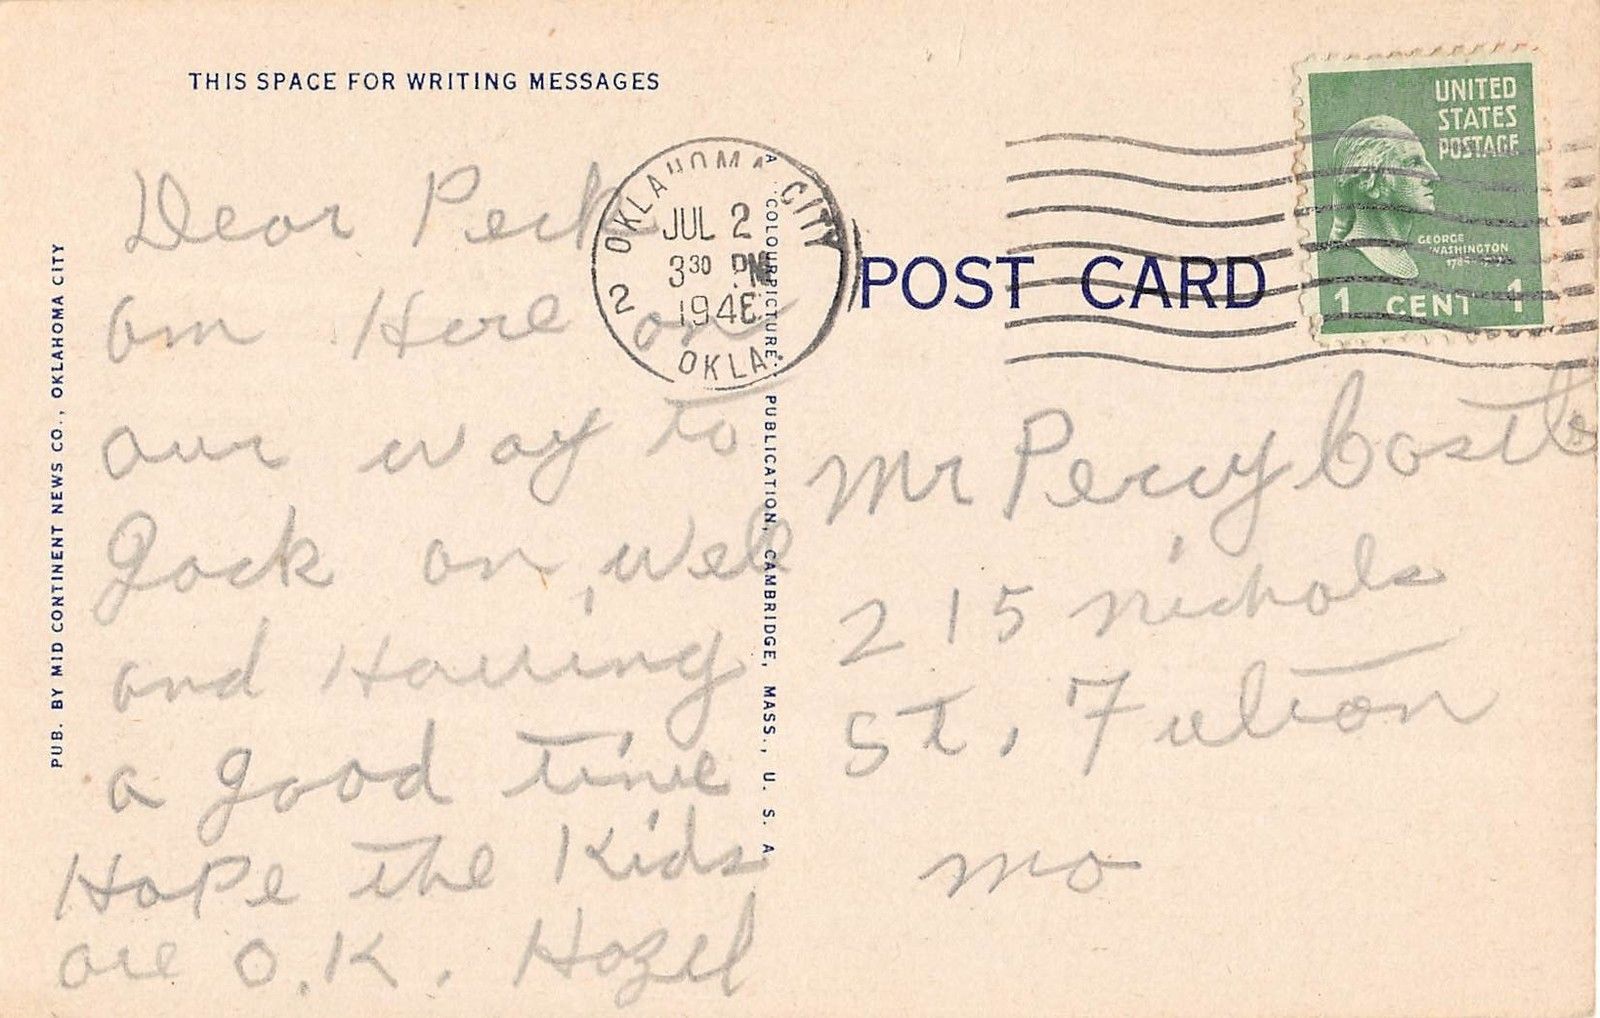 THIS SPACE FOR WRITING MESSAGES
Dear Perk
am Here on
our way to
Jack on, well
and Having
a good time
Hope the Kids
are O.K. Hazel
PUB. BY MID CONTINENT NEWS CO., OKLAHOMA CITY
A "COLOURPICTURE" PUBLICATION, CAMBRIDGE, MASS., U. S. A
OKLAHOMA CITY
JUL 2
3 30 PM
1946
2
OKLA.
POST CARD
UNITED
STATES
POSTAGE
GEORGE
WASHINGTON
1 CENT 1
Mr Percy
215 Nichols
St, Fulton
Mo